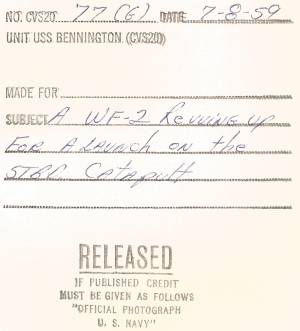 NO. CVS20) 77 (G) DATE 7-8-59
UNIT USS. BENNINGTON. (CVS20)
MADE FOR
SUBJECT A WF-2 Revving up
FOR A LAUNCH ON the
STBD. Catapult
RELEASED
IF PUBLISHED CREDIT
MUST BE GIVEN AS FOLLOWS
"OFFICIAL PHOTOGRAPH
U. S. NAVY"